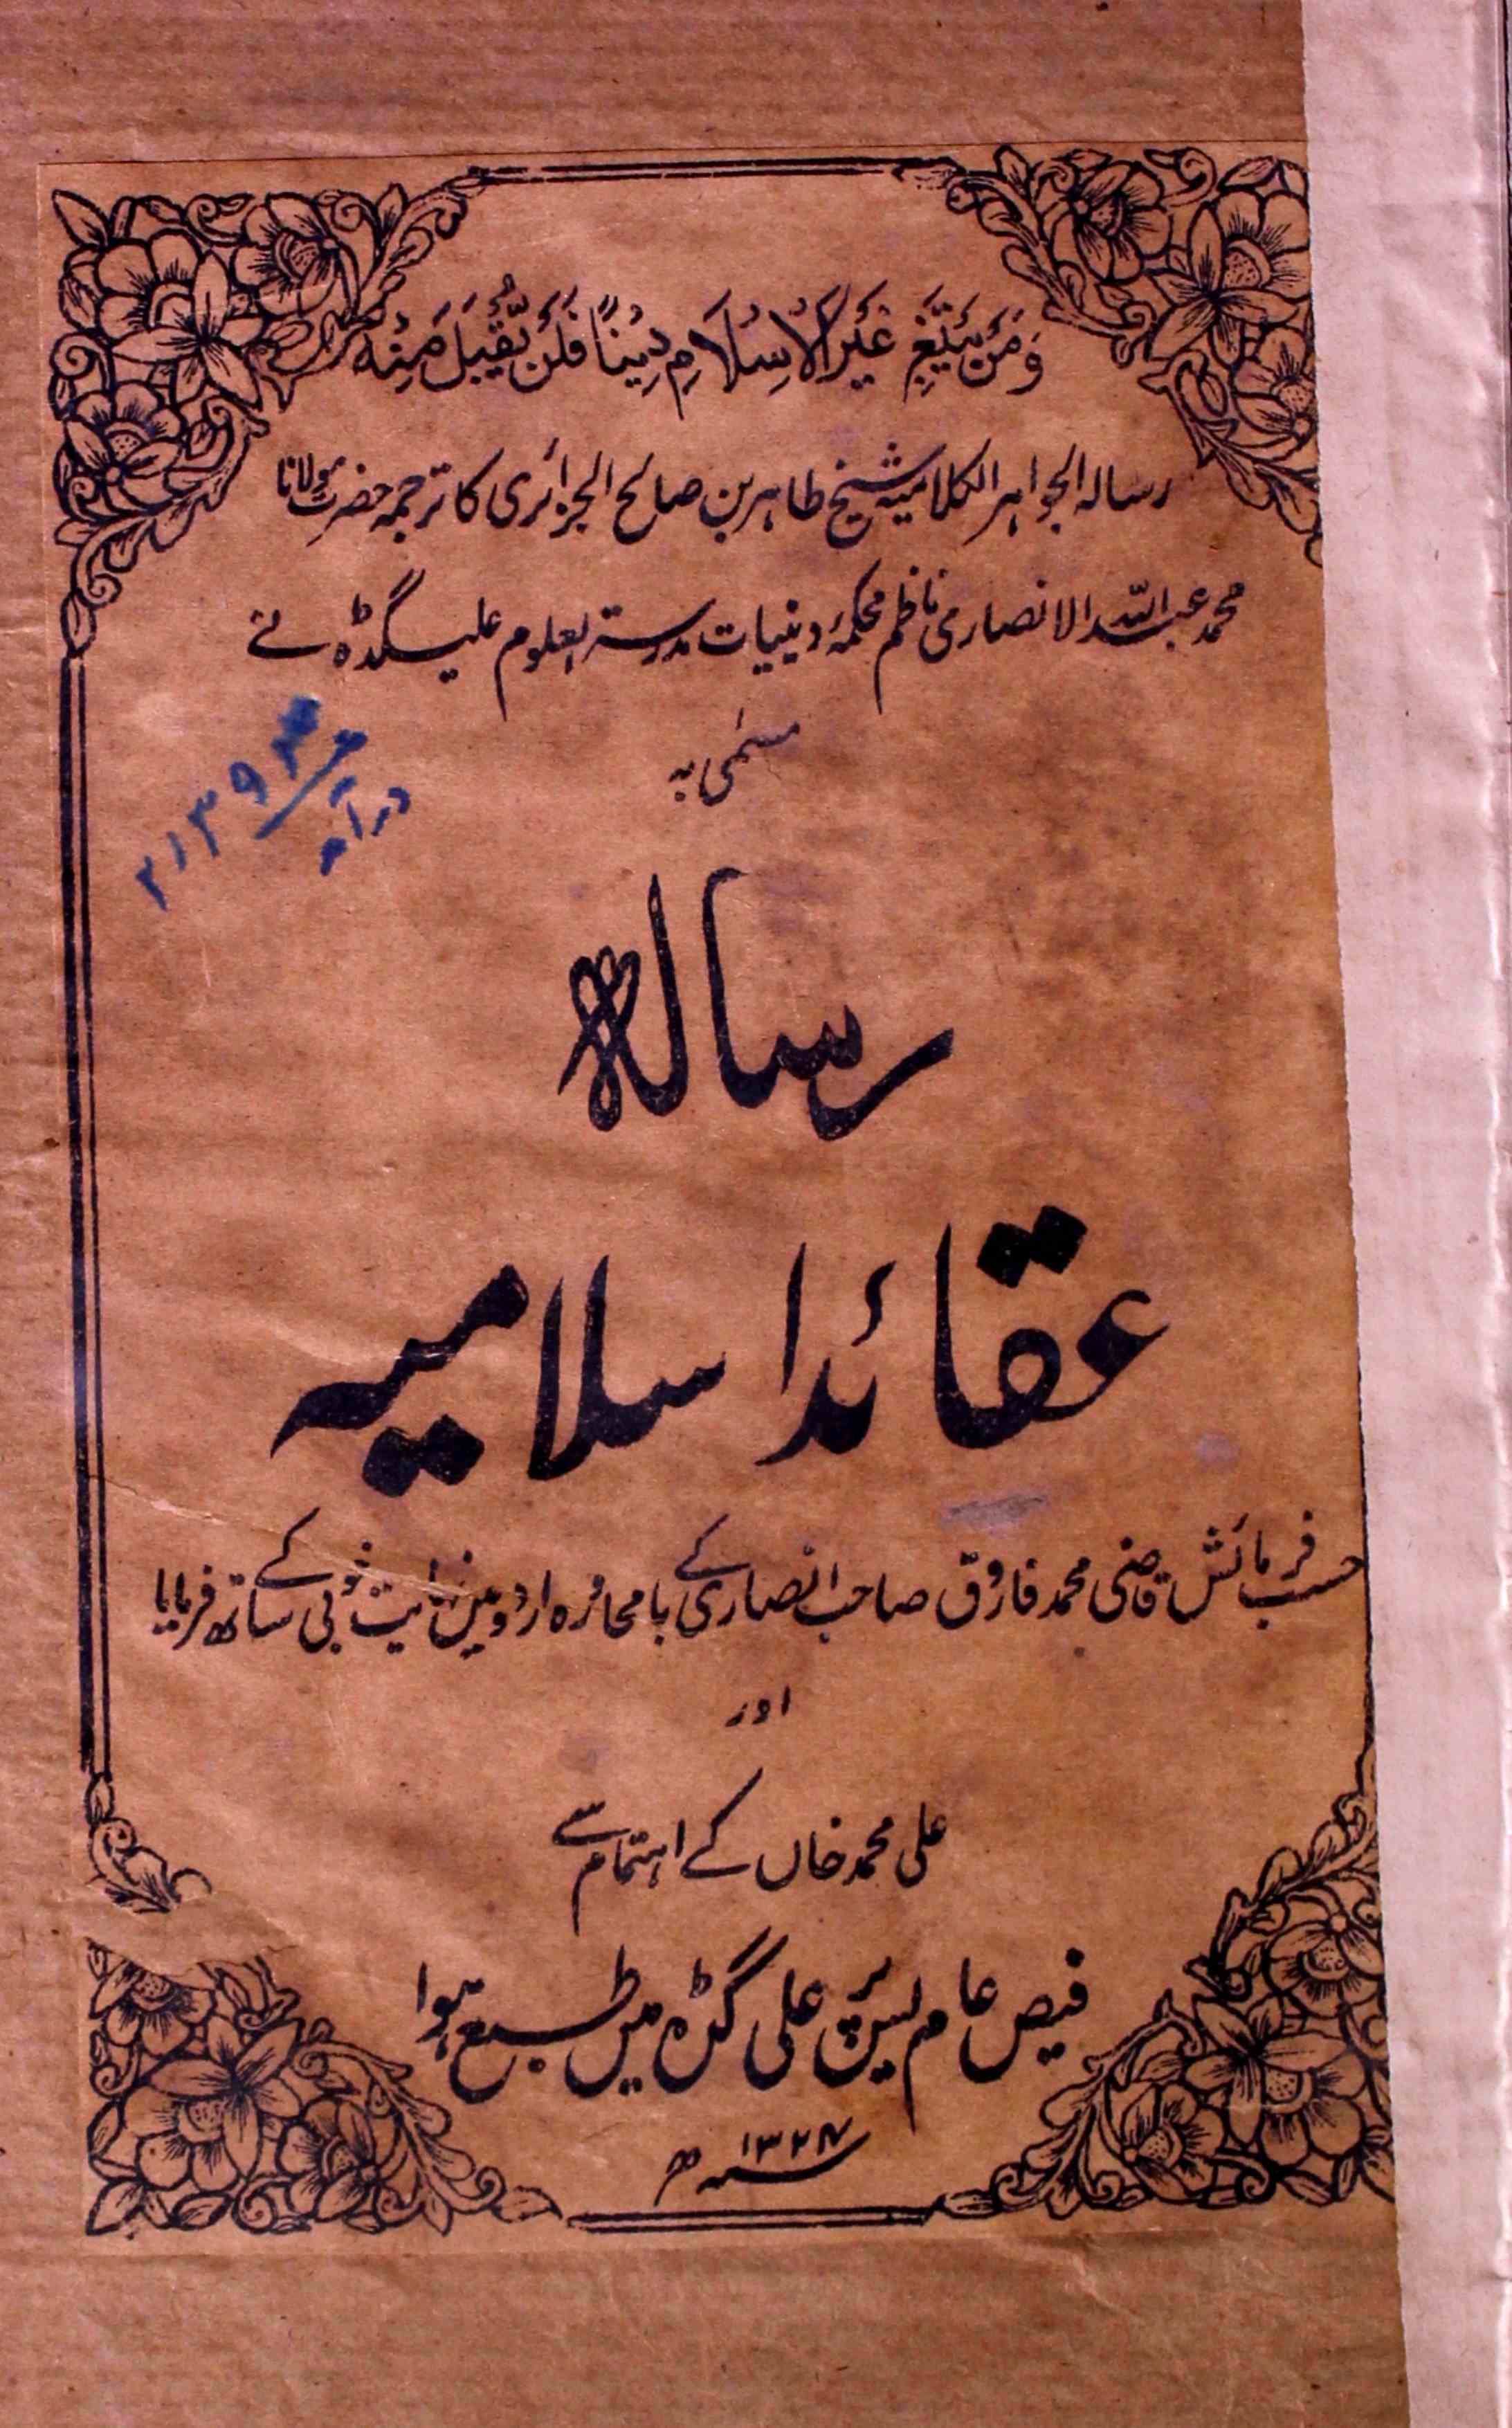 وَمَنْ يَّبْتَغِ غَيْرَ الْاِسْلَامِ دِيْنًا فَلَنْ يُّقْبَلَ مِنْهُ
رسالہ الجواہر الکلامیہ شیخ طاہر بن صالح الجزائری کا ترجمہ حضرت مولانا
محمد عبداللہ الانصاری ناظم محکمہ دینیات مدرستہ العلوم علیگڈہ نے
مسمٰی بہ
درآمد
۲۱۳۹
رسالہ
عقائد اسلامیہ
حسب فرمائش قاضی محمد فاروق صاحب انصاری کے بامحاورہ اردو مین نہایت خوبی کے ساتھ فرمایا
اور
علی محمد خاں کے اہتمام سے
فیض عام پریس علی گڈہ میں طبع ہوا